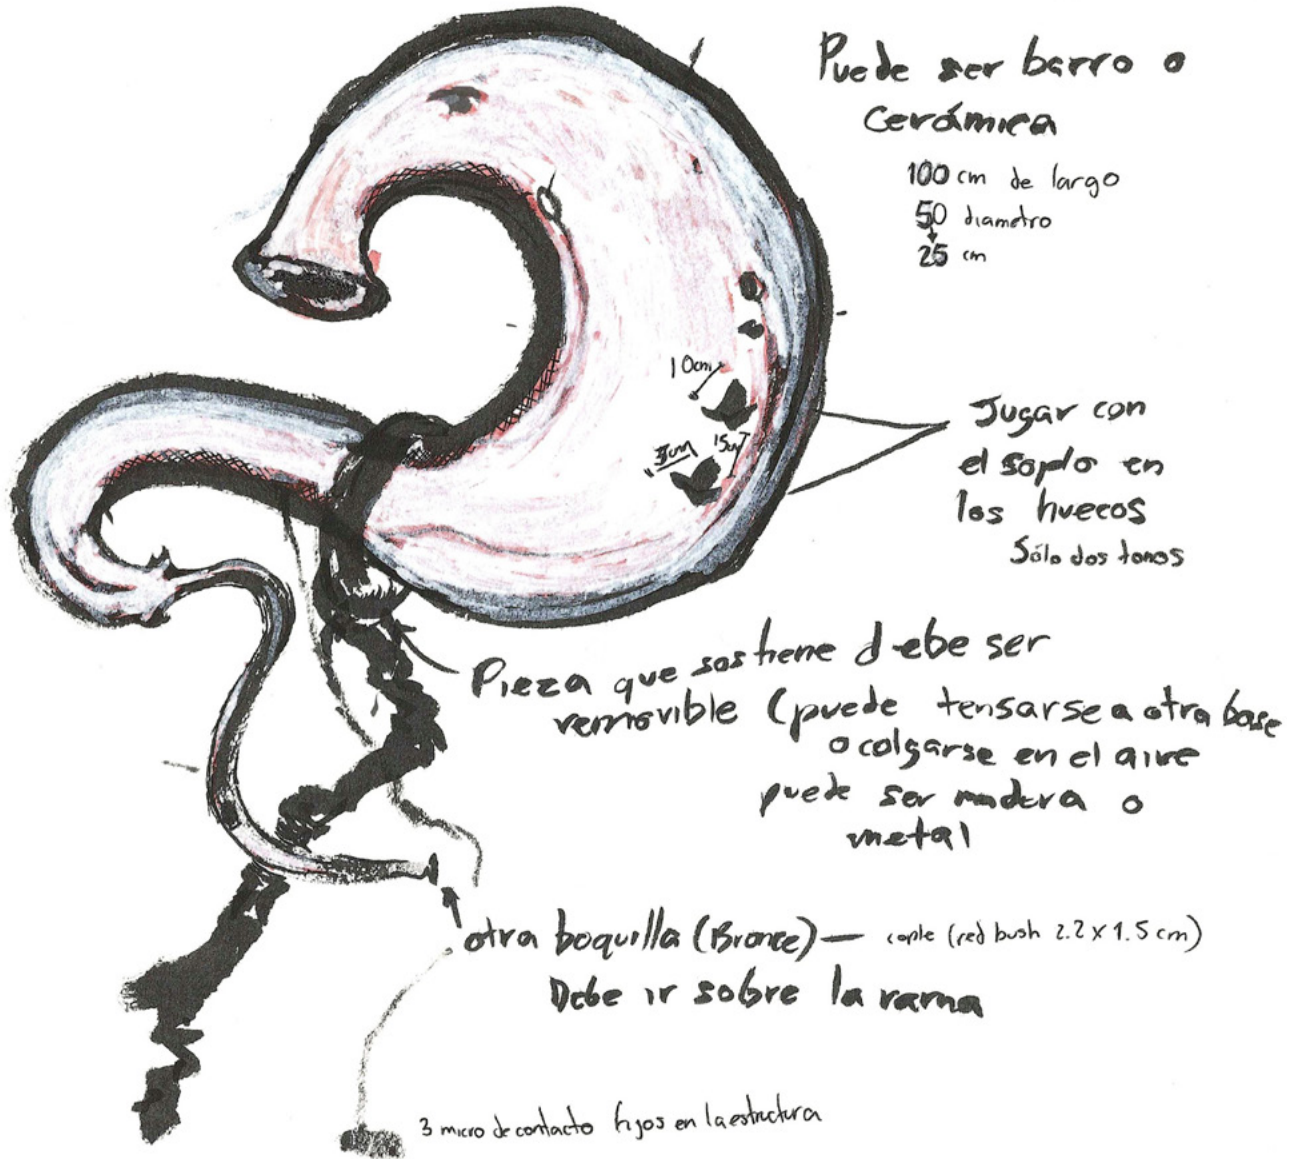 Puede ser barro o
cerámica
100 cm de largo
50 diametro
25 cm
10cm
15cm
Jugar con
el soplo en
los huecos
Sólo dos tonos
Pieza que sostiene debe ser
removible (puede tensarse a otra base
o colgarse en el aire
puede ser madera o
metal
otra boquilla (Bronce) — cople (red bush 2.2 x 1.5 cm)
Debe ir sobre la rama
3 micro de contacto fijos en la estructura